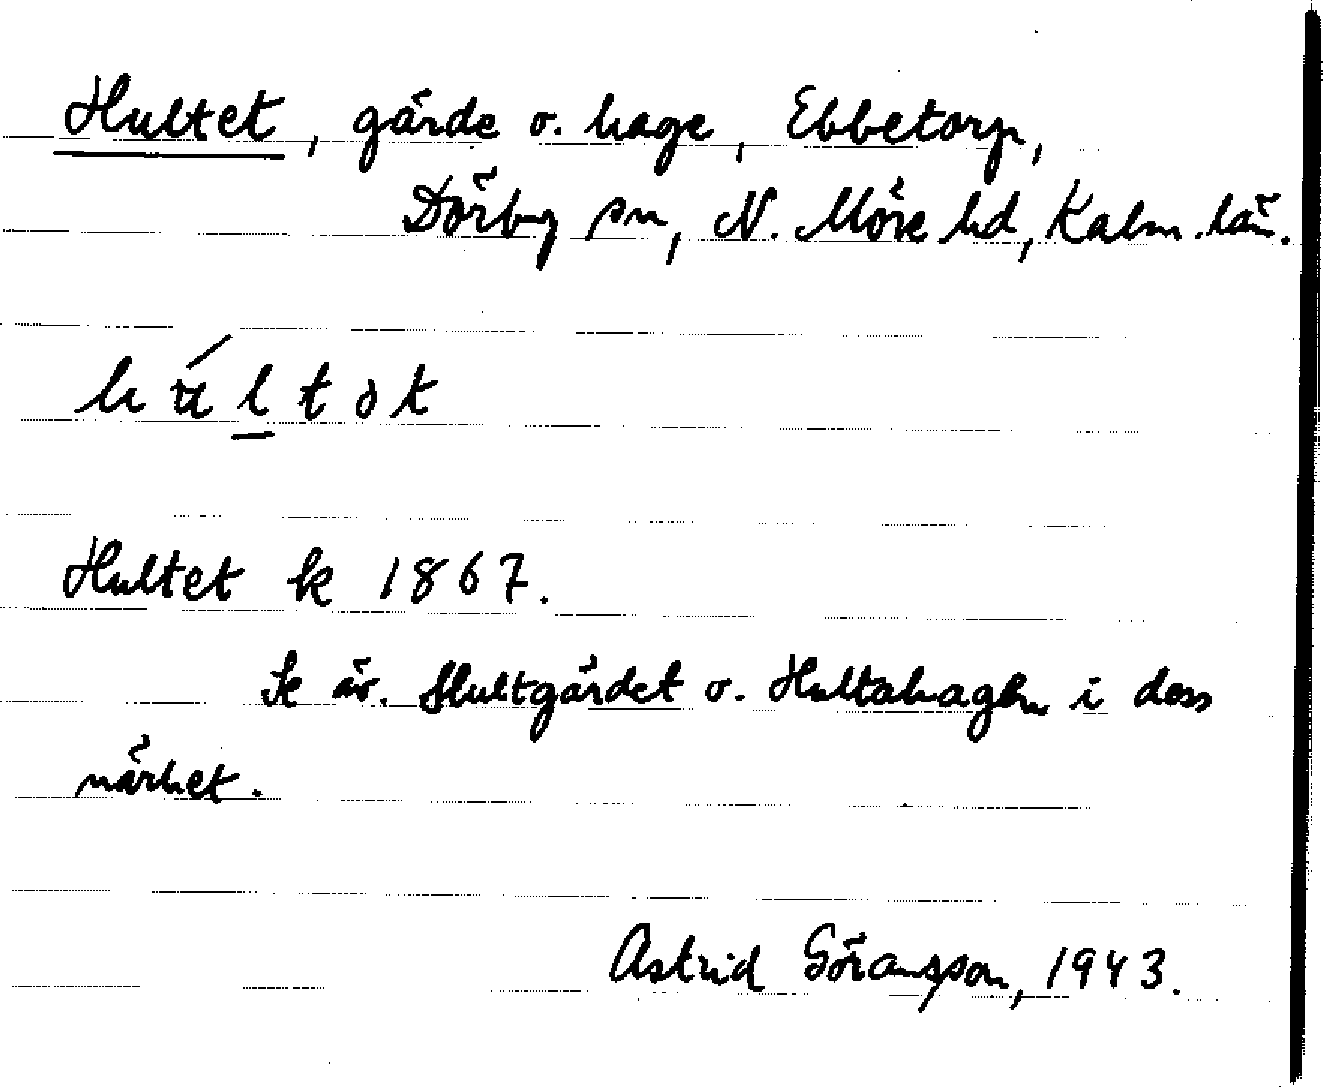 Hultet, gärde o. hage, Ebbetorp,
Dörby sn, N. Möre hd, Kalm. län.
hu̇́ltət
Hultet k 1867.
Se äv. Hultgärdet o. Hultahagen i dess
närhet.
Astrid Göransson, 1943.